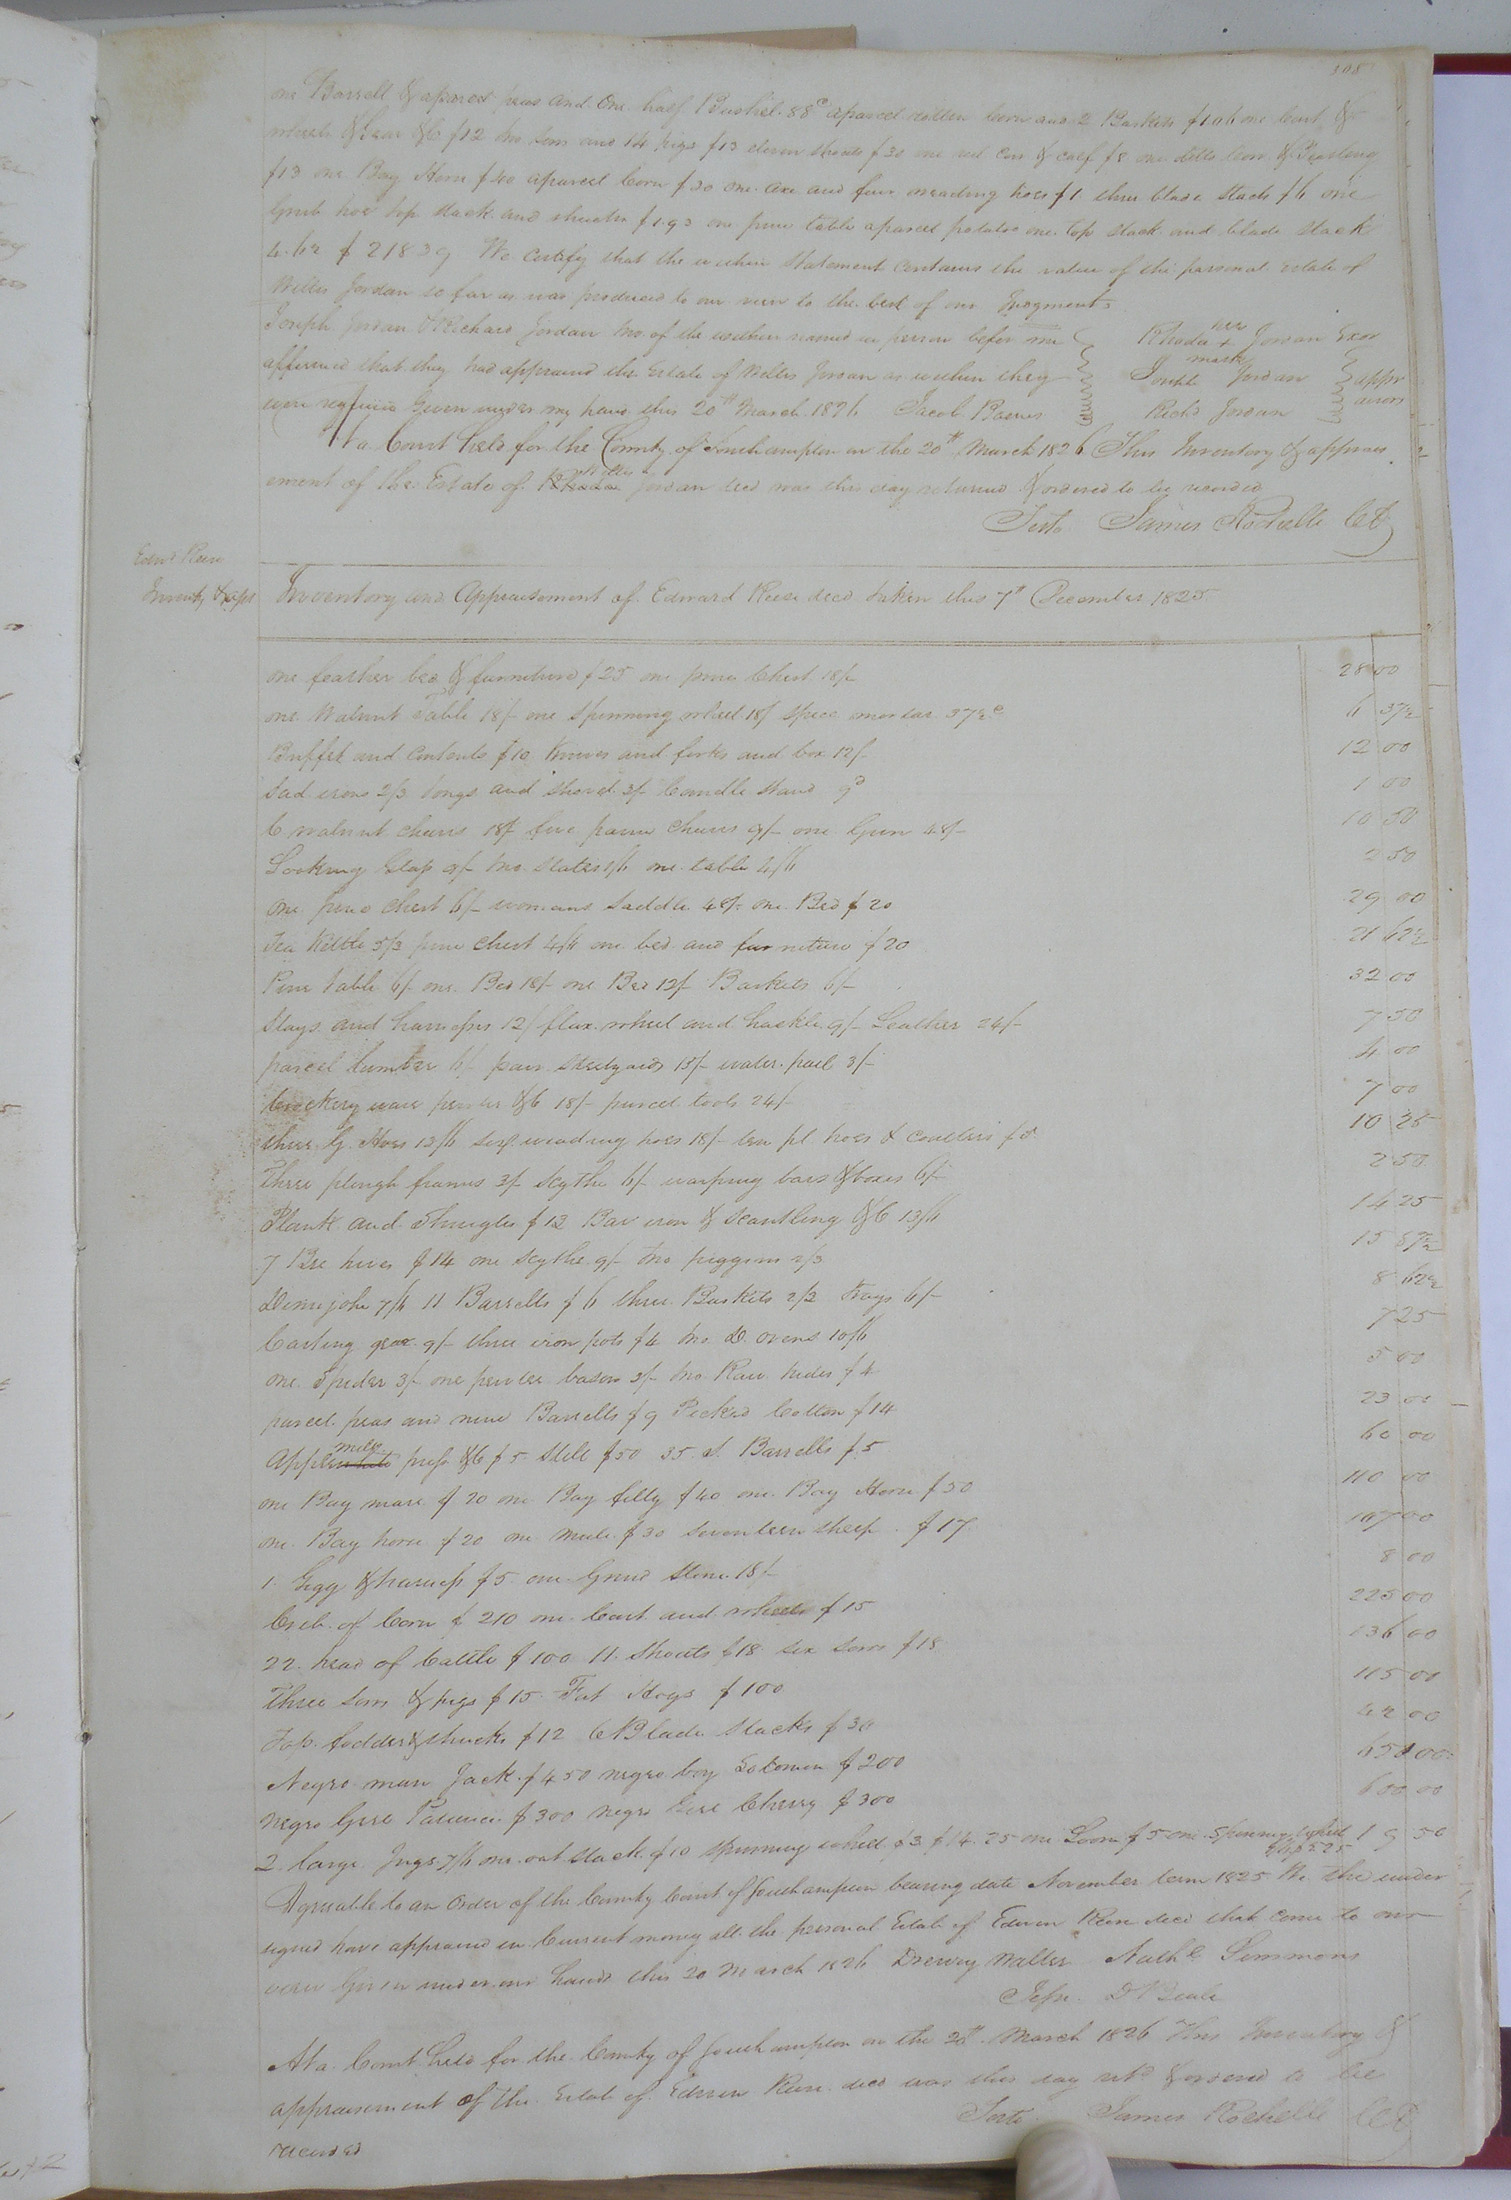 308
one Barrell & aparcel peas and One half Bushel 88c aparcel rotten corn and 2 Baskets $1.06 one Cart &
wheels & Gear &C $12 two sows and 14 pigs $13 eleven shoats $20 one red Cow & calf $8 one ditto Cow & Yearling
$13 one Bay Horse $40 aparcel Corn $20 one axe and four weading hoes $1 three blade stacks $6 one
Grub hoe top stack and shucks $1.93 one pine table aparcel potatoes one top stack and blade stack
4.62 $218.39 We Certify that the within Statement contains the value of the personal estate of
Willis Jordan so far as was produced to our view to the best of our Judgments
Joseph Jordan & Richard Jordan two of the within named in person before me
affirmed that they had appraised the Estate of Willis Jordan as within they
were required Given under my hand this 20th March 1826 Jacob Barnes
Rhoda her + mark Jordan Exor
Joseph Jordan
Richd Jordan
appraisors
At a Court held for the County of Southampton on the 20th March 1826 This Inventory & appraisement
of the Estate of Rhoda Willis Jordan decd was this day returned & ordered to be recorded
Teste James Rochelle CC
Edwd Reese
Inventy & apt
Inventory and Appraisement of Edward Reese decd taken this 7th December 1825
one feather bed & furniture $25 one pine Chest 18/- 28 00
one Walnut Table 18/- one spinning wheel 18/ spice mortar 37½c 6 37½
Buffet and Contents $10 Knives and forks and box 12/- 12 00
Sad irons 2/3 tongs and shovel 3/- Candle stand 9d 1 00
6 walnut chairs 18/ five pain chairs 9/- one Gun 48/- 10 50
Looking Glass 9/- two slates 1/6 one table 4/6 2 50
one pine chest 6/- womans saddle 48/- one Bed $20 29 00
Tea Kettle 5/3 pine chest 4/6 one bed and furniture $20 21 62½
Pine table 6/- one Bed 18/- one Bed 12/- Baskets 6/- 32 00
Slays and harnesses 12/ flax wheel and hackle 9/- Leather 24/- 7 50
parcel lumber 6/- pair steelyards 15/- water pail 3/- 4 00
Crockery ware pewter &C 18/- parcel tools 24/- 7 00
three G. Hoes 13/6 six weading hoes 18/- ten pl hoes & coulters $5 10 25
Three plough frames 3/- Scythe 6/- warping bars & boxes 6/- 2 50
Plank and Shingles $12 Bar iron & Scantling &C 13/6 14 25
7 Bee hives $14 one scythe 9/- two piggins 2/3 15 87½
Demijohn 7/6 11 Barrells $6 three Baskets 2/3 Trays 6/- 8 62½
Carting gear 9/- three iron pots $4 two D. ovens 10/6 7 25
one Spider 3/- one pewter bason 3/- two Raw hides $4 5 00
parcel peas and nine Barrells $9 Picked Cotton $14 23 00
Apple mill press &C $5 Still $50 35 S. Barrells $5 60 00
one Bay mare $20 one Bay filly $40 one Bay Horse $50 110 00
one Bay horse $20 one mule $30 seventeen sheep $17 107 00
1 Gigg & harness $5 one Grind Stone 18/- 8 00
Crib of Corn $210 one Cart and wheels $15 225 00
22 head of Cattle $100 11 Shoats $18 six sows $18 136 00
Three sows & pigs $15 Fat Hogs $100 115 00
Top fodder & shucks $12 6 Blade Stacks $30 42 00
Negro man Jack $450 negro boy Solomon $200 650 00
Negro Girl Patience $300 negro Girl Cherry $300 600 00
2 large Jugs 7/6 one oat stack $10 spinning wheel $3 $14.25 one Loom $5 one Spinning wheel 19 50
Agreeable to an Order of the County Court of Southampton bearing date November term 1825 We the under
signed have appraised in Current money all the personal Estate of Edwin Reese decd that come to our
view Given under our hands this 20 March 1826 Drewry Waller Nathl Simmons
Jesse D Beale
At a Court held for the County of Southampton on the 20th March 1826 This Inventory &
appraisement of the Estate of Edwin Reese decd was this day retd & ordered to be
Teste James Rochelle CC
recorded